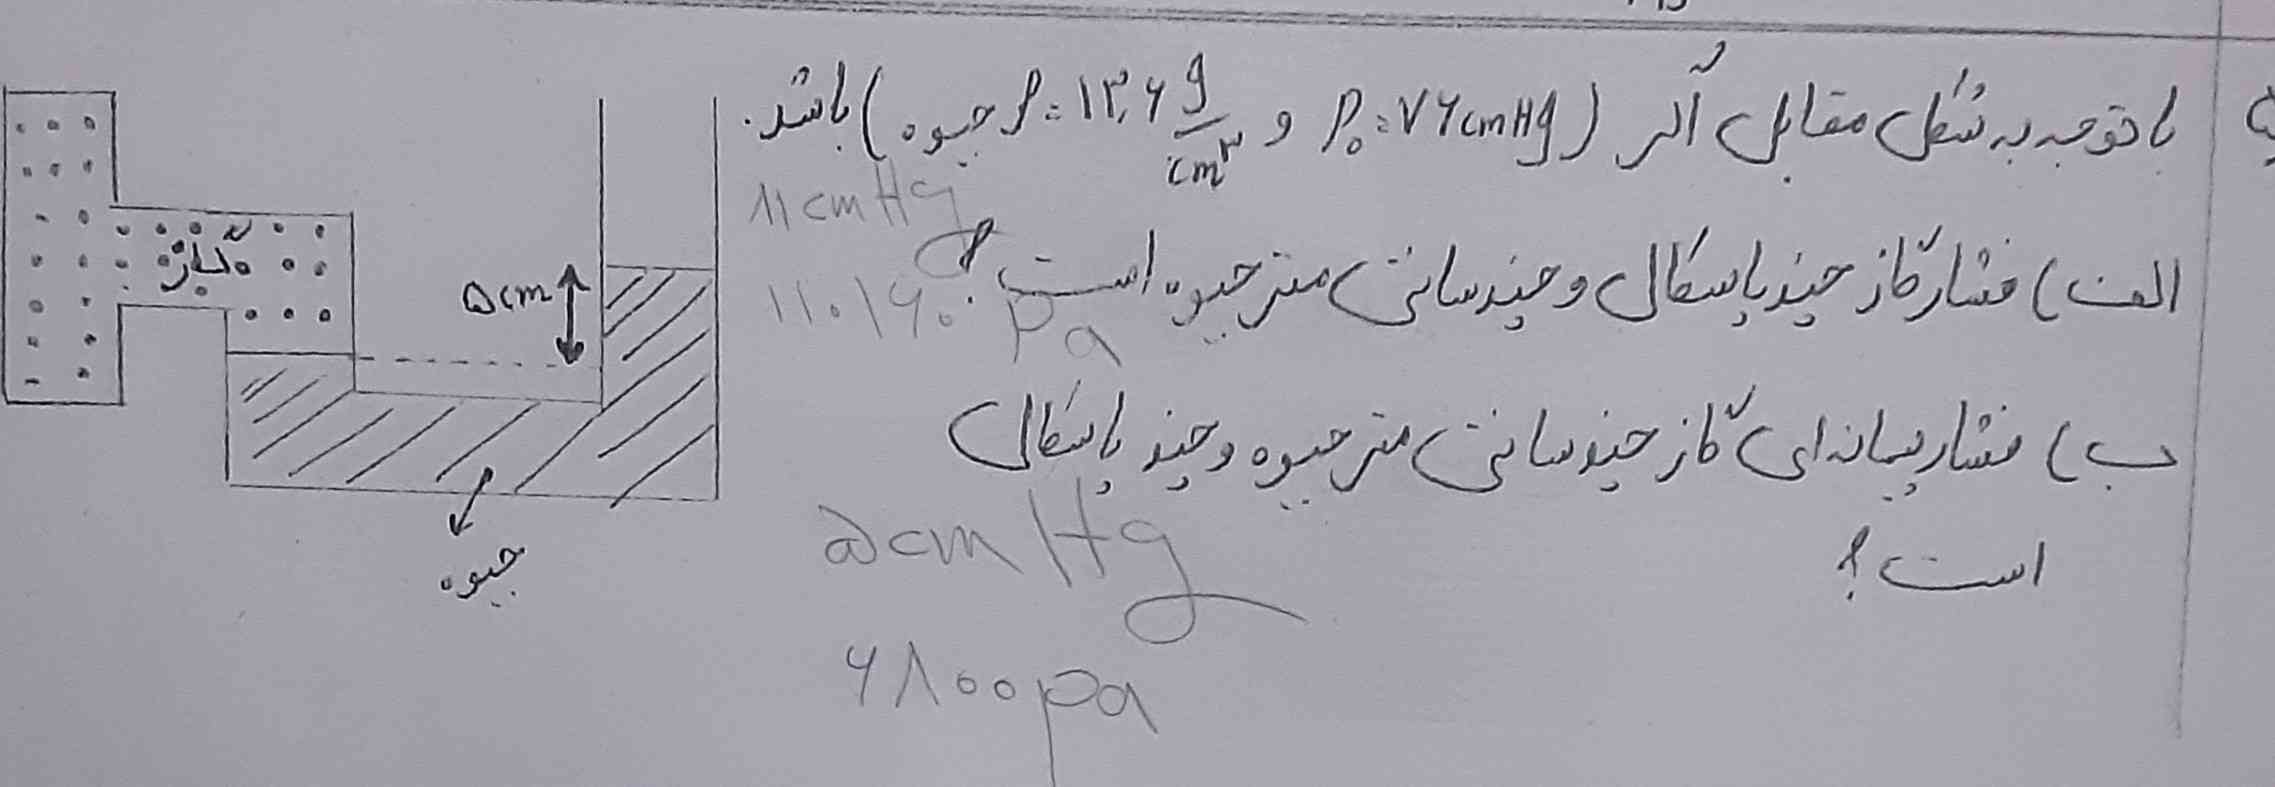 با توجه به شکل مقابل اگر (P₀ = ۷۶ cmHg و ρ = ۱۳٫۶ g/cm³ جیوه) باشد.
الف) فشار گاز چند پاسکال و چند سانتی متر جیوه است؟
۸۱ cmHg
۱۱۰۱۶۰ Pa
ب) فشار پیمانه ای گاز چند سانتی متر جیوه و چند پاسکال
است؟
۵ cm Hg
۶۸۰۰ pa
گاز
۵cm
جیوه